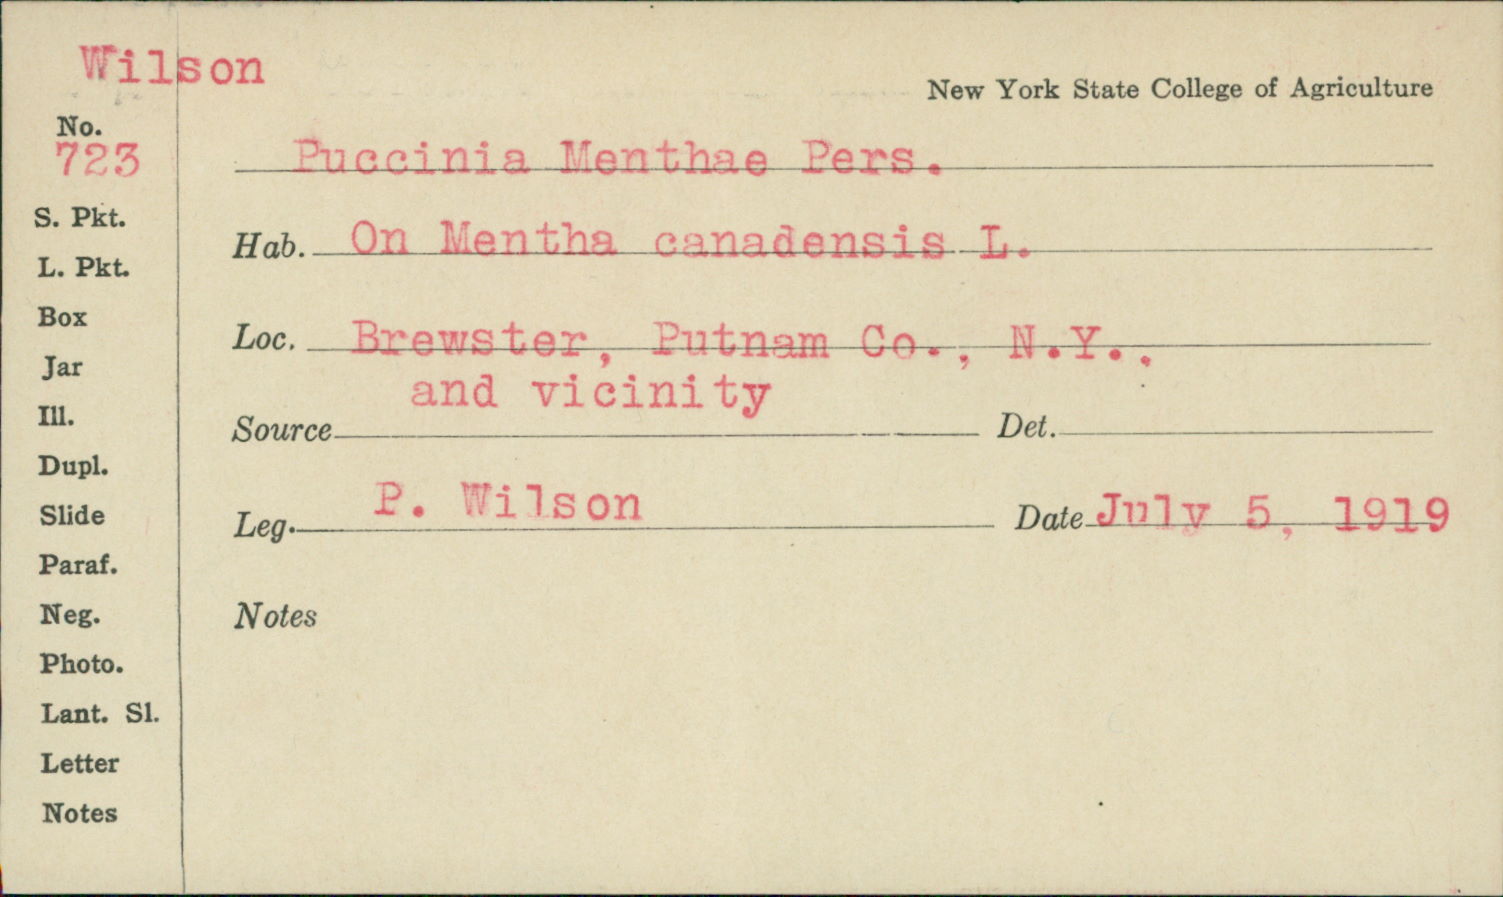 Wilson
New York State College of Agriculture
No.
723
Puccinia Menthae Pers.
S. Pkt.
Hab. On Mentha canadensis L.
L. Pkt.
Box
Loc. Brewster, Putnam Co., N.Y.,
Jar
and vicinity
Ill.
Source Det.
Dupl.
Slide
Leg. P. Wilson Date July 5, 1919
Paraf.
Neg.
Notes
Photo.
Lant. Sl.
Letter
Notes